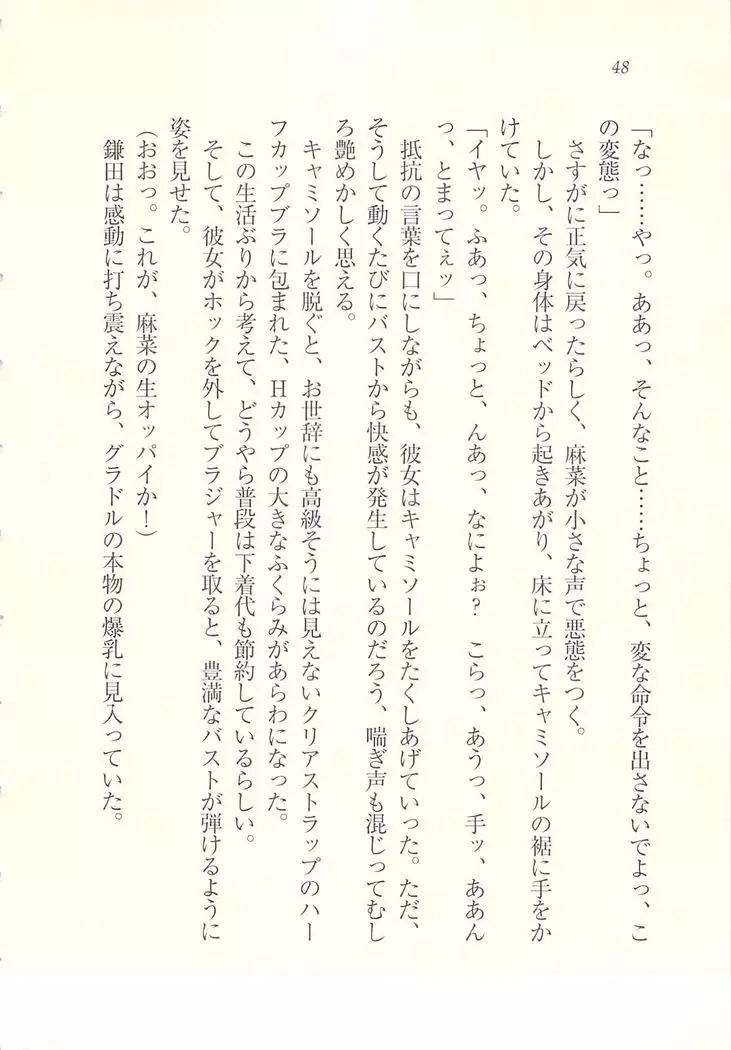 48
「なっ……やっ。ああっ、そんなこと……ちょっと、変な命令を出さないでよっ、こ
の変態っ」
さすがに正気に戻ったらしく、麻菜が小さな声で悪態をつく。
しかし、その身体はベッドから起きあがり、床に立ってキャミソールの裾に手をか
けていた。
「イヤッ。ふあっ、ちょっと、んあっ、なによぉ？　こらっ、あうっ、手ッ、ああん
っ、とまってぇッ」
抵抗の言葉を口にしながらも、彼女はキャミソールをたくしあげていった。ただ、
そうして動くたびにバストから快感が発生しているのだろう、喘ぎ声も混じってむし
ろ艶めかしく思える。
キャミソールを脱ぐと、お世辞にも高級そうには見えないクリアストラップのハー
フカップブラに包まれた、Hカップの大きなふくらみがあらわになった。
この生活ぶりから考えて、どうやら普段は下着代も節約しているらしい。
そして、彼女がホックを外してブラジャーを取ると、豊満なバストが弾けるように
姿を見せた。
（おおっ。これが、麻菜の生オッパイか！）
鎌田は感動に打ち震えながら、グラドルの本物の爆乳に見入っていた。